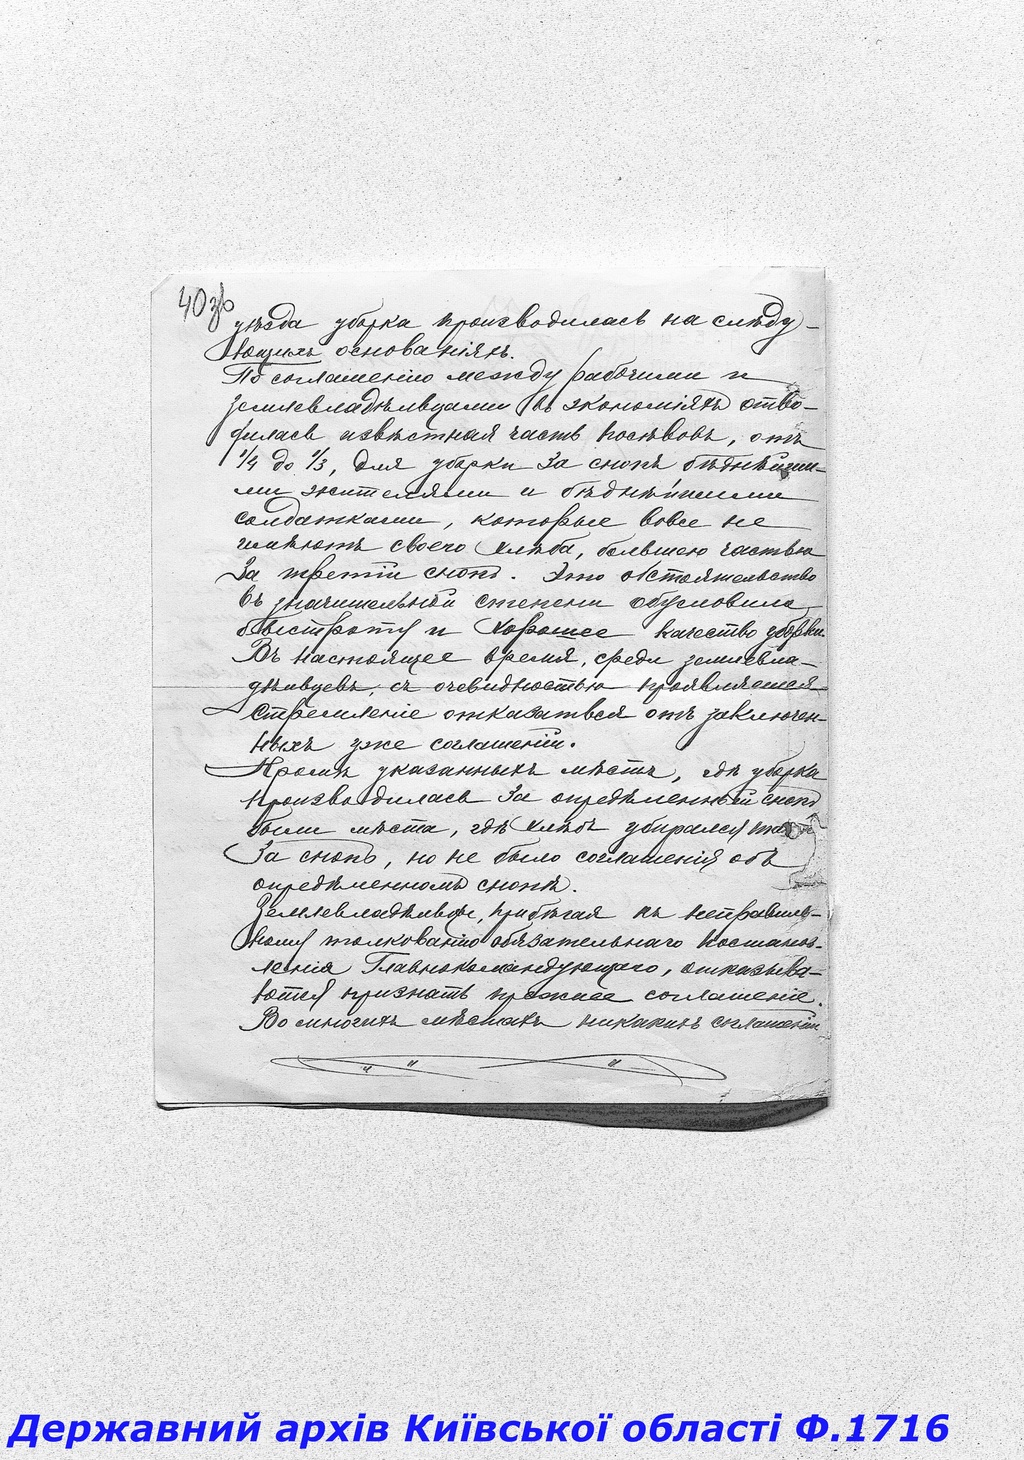 40зв
уѣзда уборка производилась на слѣду-
ющихъ основаніяхъ.
По соглашенію между рабочими и
землевладѣльцами въ экономіяхъ отво-
дилась извѣстная часть посѣвовъ, отъ
1/4 до 1/3, для уборки за снопъ бѣднѣйши-
ми жителями и бѣднѣйшими
солдатками, которые вовсе не
имѣютъ своего хлѣба, большою частью
за третій снопъ. Это обстоятельство
въ значительной степени обусловило
быстроту и хорошее качество уборки.
Въ настоящее время, среди землевла-
дѣльцевъ, съ очевидностью проявляется
стремленіе отказаться отъ заключен-
ныхъ уже соглашеній.
Кромѣ указанныхъ мѣстъ, гдѣ уборка
производилась за опредѣленный снопъ
были мѣста, гдѣ хлѣбъ убирался
за снопъ, но не было соглашенія объ
опредѣленномъ снопѣ.
Землевладѣльцы, прибѣгая къ неправиль-
ному толкованію обязательнаго постанов-
ленія Главнокомандующаго, отказыва-
ются признать прежнее соглашеніе.
Во многихъ мѣстахъ никакихъ соглашеній
Державний архів Київської області Ф.1716